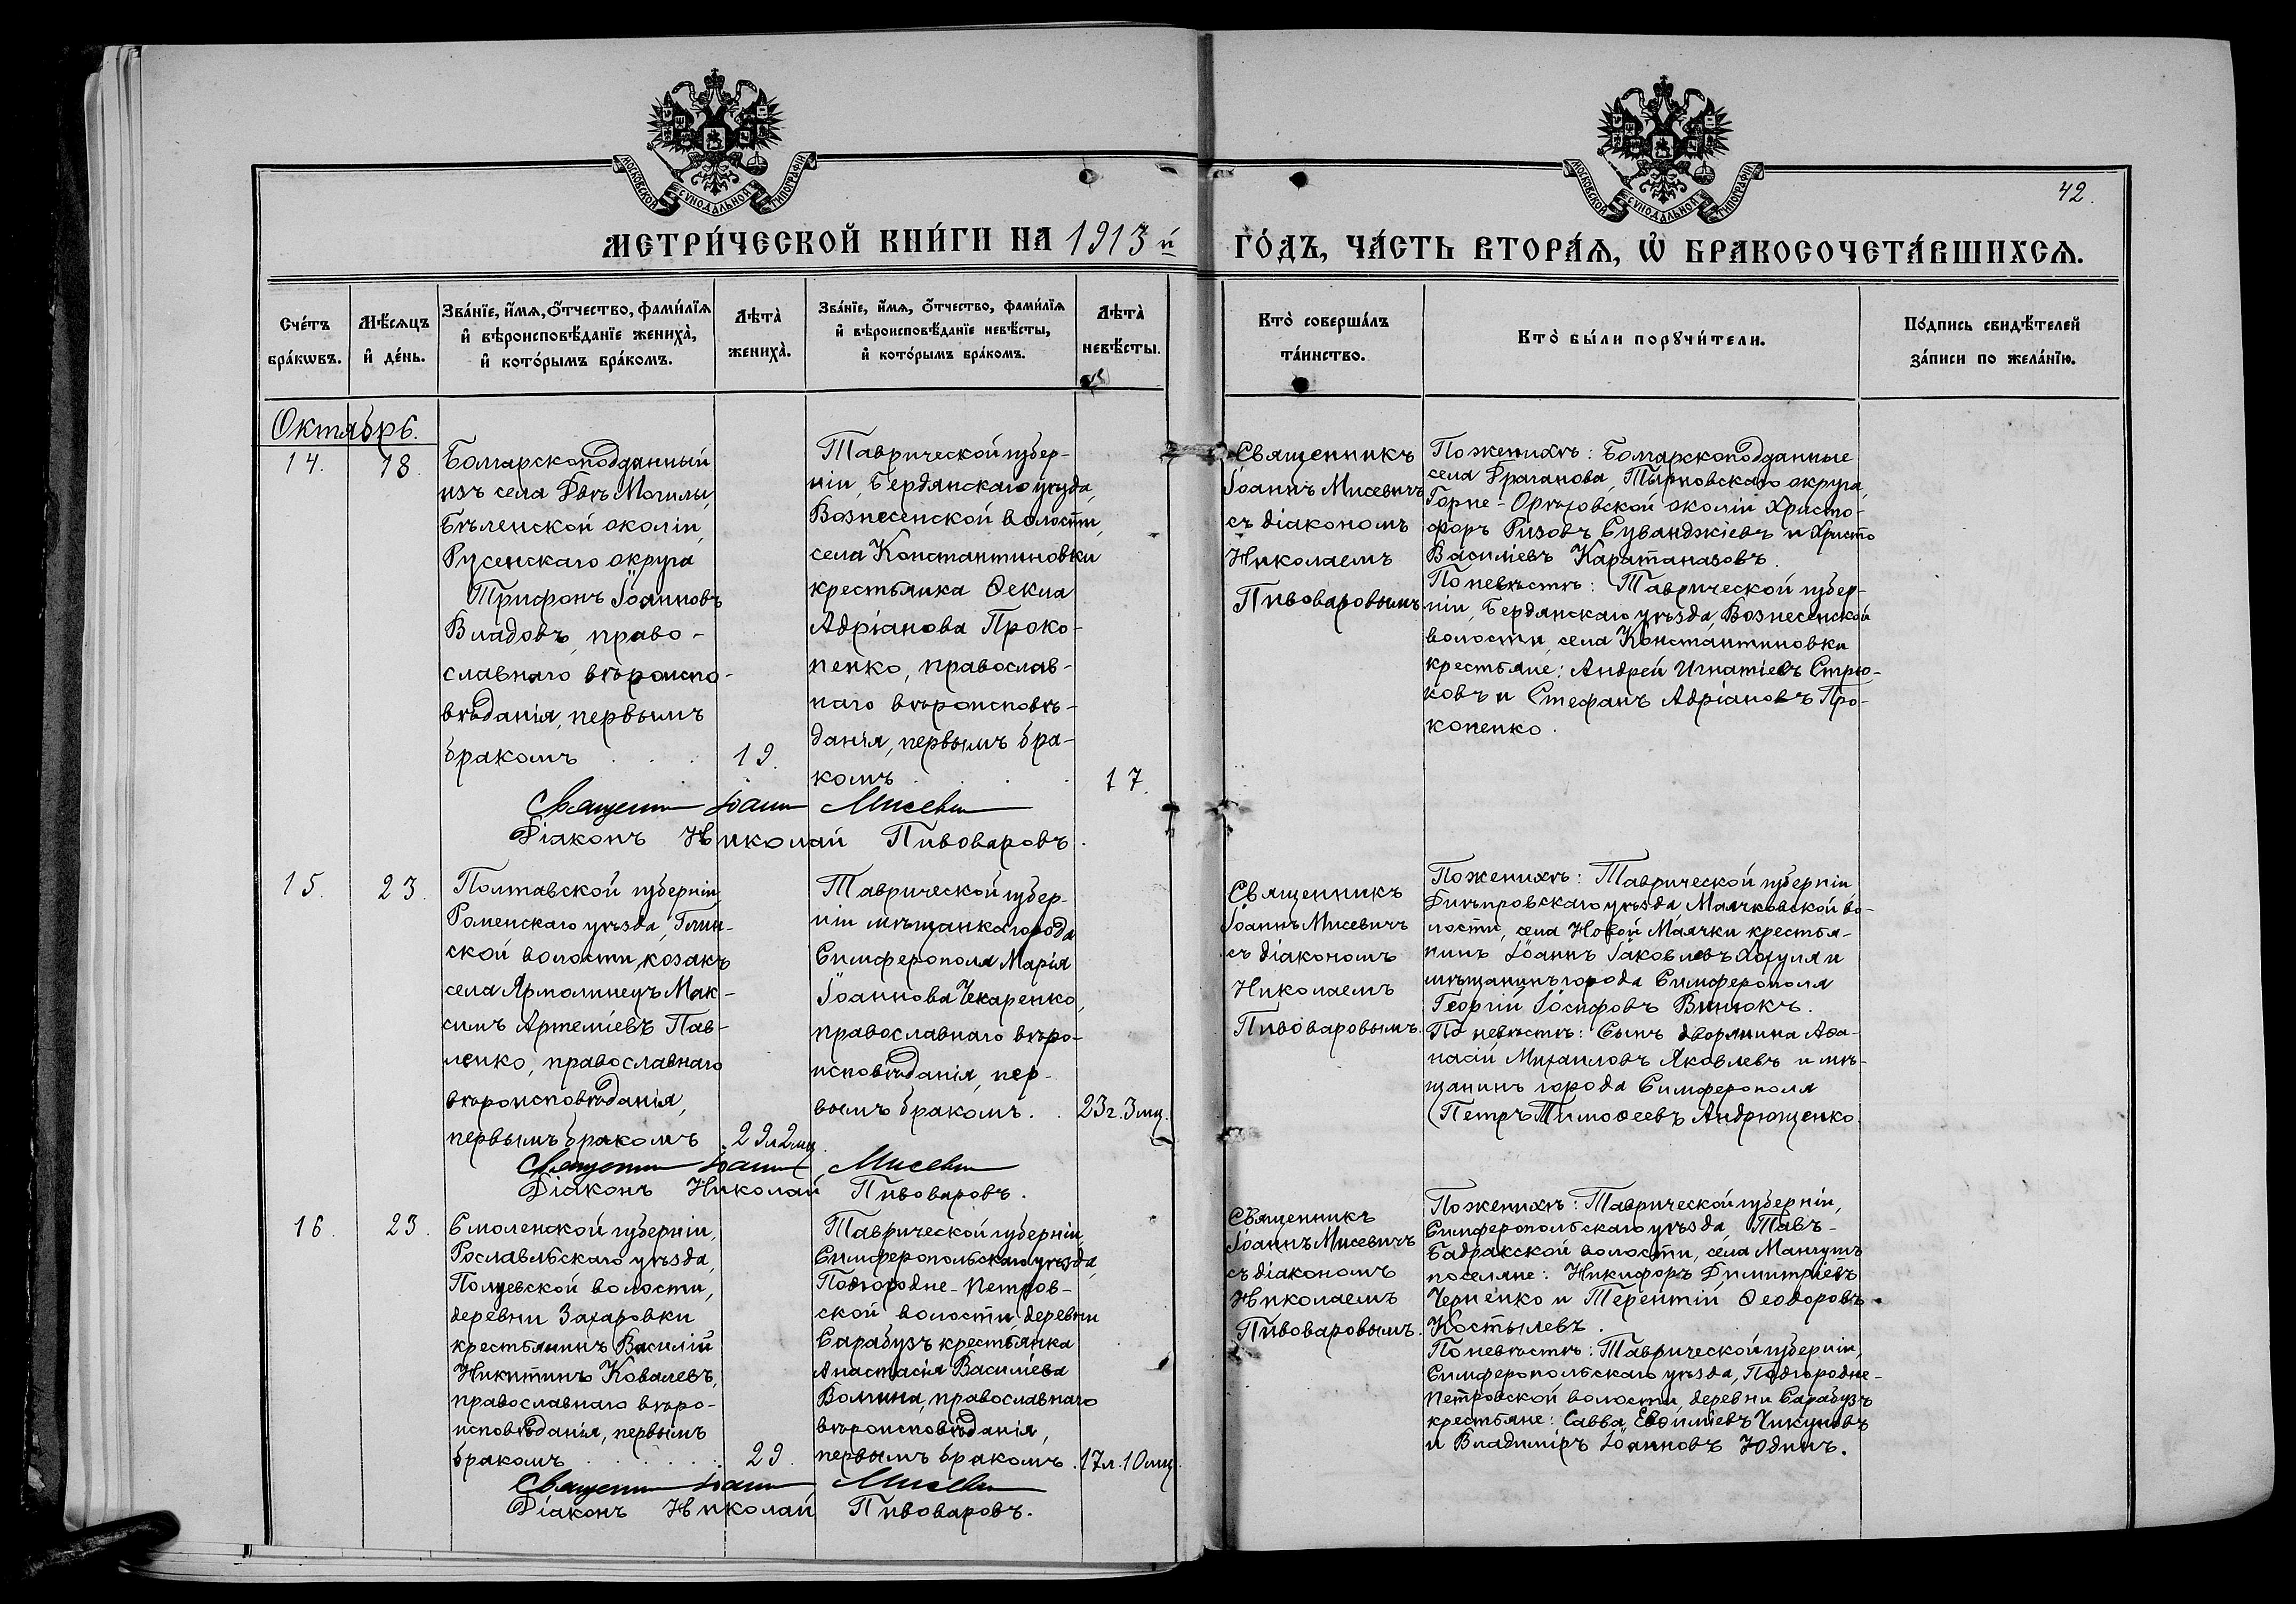 МОСКОВСКОЙ СУНОДАЛЬНОЙ ТИПОГРАФІИ
МОСКОВСКОЙ СУНОДАЛЬНОЙ ТИПОГРАФІИ
42.
МЕТРИ́ЧЕСКОЙ КНИ́ГИ НА 1913 й ГО́ДЪ, ЧА́СТЬ ВТОРА́Ѧ, Ѡ҆ БРАКОСОЧЕТА́ВШИХСѦ.
Сче́тъ
бра́кѡвъ.
Мѣ́сѧцъ
и҆ де́нь.
Зва́нїе, и҆́мѧ, ѻ҆́тчество, фами́лїѧ
и҆ вѣроисповѣ́данїе жениха̀,
и҆ кото́рымъ бра́комъ.
Лѣта̀
жениха̀.
Зва́нїе, и҆́мѧ, ѻ҆́тчество, фами́лїѧ
и҆ вѣроисповѣ́данїе невѣ́сты,
и҆ кото́рымъ бра́комъ.
Лѣта̀
невѣ́сты.
Кто̀ соверша́лъ
та́инство.
Кто̀ бы́ли порꙋчи́тели.
По́дпись свидѣ́телей
за́писи по жела́нїю.
Октябрь.
14.
18.
Болгарскоподданный
изъ села Двѣ Могилы,
Бѣленской околіи,
Русенскаго округа
Трифонъ Іоанновъ
Владовъ, право-
славнаго вѣроиспо-
вѣданія, первымъ
бракомъ . . .
19.
Таврической губер-
ніи, Бердянскаго уѣзда,
Вознесенской волости,
села Константиновки
крестьянка Ѳекла
Адріанова Проко-
пенко, православ-
наго вѣроисповѣ-
данія, первымъ бра-
комъ . . .
17.
Священникъ
Іоаннъ Мисевичъ
съ діакономъ
Николаемъ
Пивоваровымъ.
По женихѣ: Болгарскоподданные
села Драганова, Тырновскаго округа,
Горне-Орѣховской околіи Христо-
форъ Ризовъ Суванджіевъ и Христо
Василіевъ Каратаназовъ.
По невѣстѣ: Таврической губер-
ніи, Бердянскаго уѣзда, Вознесенской
волости, села Константиновки
крестьяне: Андрей Игнатіевъ Стрю-
ковъ и Стефанъ Адріановъ Про-
копенко.
Священникъ Іоаннъ Мисевичъ
Діаконъ Николай Пивоваровъ.
15.
23.
Полтавской губерніи,
Роменскаго уѣзда, Глин-
ской волости, козакъ
села Ярмолинецъ Мак-
симъ Артеміевъ Пав-
ленко, православнаго
вѣроисповѣданія,
первымъ бракомъ
29л.2мц.
Таврической губер-
ніи мѣщанка города
Симферополя Марія
Іоаннова Чекаренко,
православнаго вѣро-
исповѣданія, пер-
вымъ бракомъ. .
23г.3мц.
Священникъ
Іоаннъ Мисевичъ
съ діакономъ
Николаемъ
Пивоваровымъ.
По женихѣ: Таврической губерніи
Днѣпровскаго уѣзда Маячковской во-
лости, села Новой Маячки крестья-
нинъ Іоаннъ Іаковлевъ Хохуля и
мѣщанинъ города Симферополя
Георгій Іосифовъ Винюкъ.
По невѣстѣ: Сынъ дворянина Аѳа-
насій Михаиловъ Яковлевъ и мѣ-
щанинъ города Симферополя
Петръ Тимоѳеевъ Андрющенко.
Священникъ Іоаннъ Мисевичъ
Діаконъ Николай Пивоваровъ.
16.
23.
Смоленской губерніи,
Рославльскаго уѣзда,
Полуевской волости,
деревни Захаровки
крестьянинъ Василій
Никитинъ Ковалевъ,
православнаго вѣро-
исповѣданія, первымъ
бракомъ . . . . .
29.
Таврической губерніи,
Симферопольскаго уѣзда,
Подгородне-Петров-
ской волости, деревни
Сарабузъ крестьянка
Анастасія Василіева
Волкина, православнаго
вѣроисповѣданія,
первымъ бракомъ.
17л.10мц.
Священникъ
Іоаннъ Мисевичъ
съ діакономъ
Николаемъ
Пивоваровымъ.
По женихѣ: Таврической губерніи,
Симферопольскаго уѣзда, Тавъ-
Бадракской волости, села Мангушъ
поселяне: Никифоръ Димитріевъ
Черненко и Терентій Ѳеодоровъ
Костылевъ.
По невѣстѣ: Таврической губерніи,
Симферопольскаго уѣзда, Подгородне-
Петровской волости, деревни Сарабузъ
крестьяне: Савва Евѳиміевъ Чикуновъ
и Владиміръ Іоанновъ Юдинъ.
Священникъ Іоаннъ Мисевичъ
Діаконъ Николай Пивоваровъ.